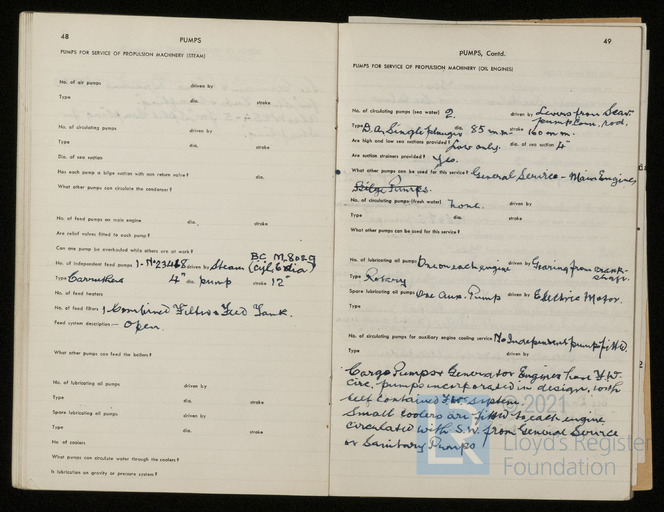 48
PUMPS
PUMPS FOR SERVICE OF PROPULSION MACHINERY (STEAM)
No. of air pumps driven by
Type dia. stroke
No. of circulating pumps driven by
Type dia. stroke
Dia. of sea suction
Has each pump a bilge suction with non return valve? dia.
What other pumps can circulate the condenser?
No. of feed pumps on main engine dia. stroke
Are relief valves fitted to each pump?
Can one pump be overhauled while others are at work?
BC M.8029
No. of independent feed pumps 1-No driven by Steam (cyl. 6" dia)
Type Carruthers 4" dia. pump stroke 12"
No. of feed heaters
No. of feed filters 1 Combined Filter & Feed Tank.
Feed system description — Open.
What other pumps can feed the boilers?
No. of lubricating oil pumps driven by
Type dia. stroke
Spare lubricating oil pumps driven by
Type dia. stroke
No. of coolers
What pumps can circulate water through the coolers?
Is lubrication on gravity or pressure system?
49
PUMPS, Contd.
PUMPS FOR SERVICE OF PROPULSION MACHINERY (OIL ENGINES)
No. of circulating pumps (sea water) 2. driven by Levers from Scav.
pump con. rod.
Type D.A. Single plunger dia. 85 m.m. stroke 160 m.m.
Are high and low sea suctions provided? Low only. dia. of sea suction 4"
Are suction strainers provided? Yes.
What other pumps can be used for this service? General Service - Main Engine,
Bilge Pumps.
No. of circulating pumps (fresh water) None. driven by
Type dia. stroke
What other pumps can be used for this service?
No. of lubricating oil pumps One on each engine driven by Gearing from crank-
shaft.
Type Rotary
Spare lubricating oil pumps One Aux. Pump driven by Electric Motor.
Type
No. of circulating pumps for auxiliary engine cooling service No Independent pump fitted.
Type driven by
Cargo Pumps & Generator Engines have F.W.
circ. pumps incorporated in design, with
self contained F.W. system.
Small coolers are fitted to each engine
circulated with S.W. from General Service
or Sanitary Pumps
2021
LR
Lloyd's Register
Foundation